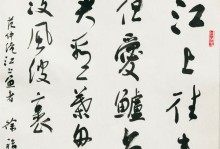 江上往来
但愛鱸魚
看一葉舟
没風波裏
范仲淹江上漁者 徐